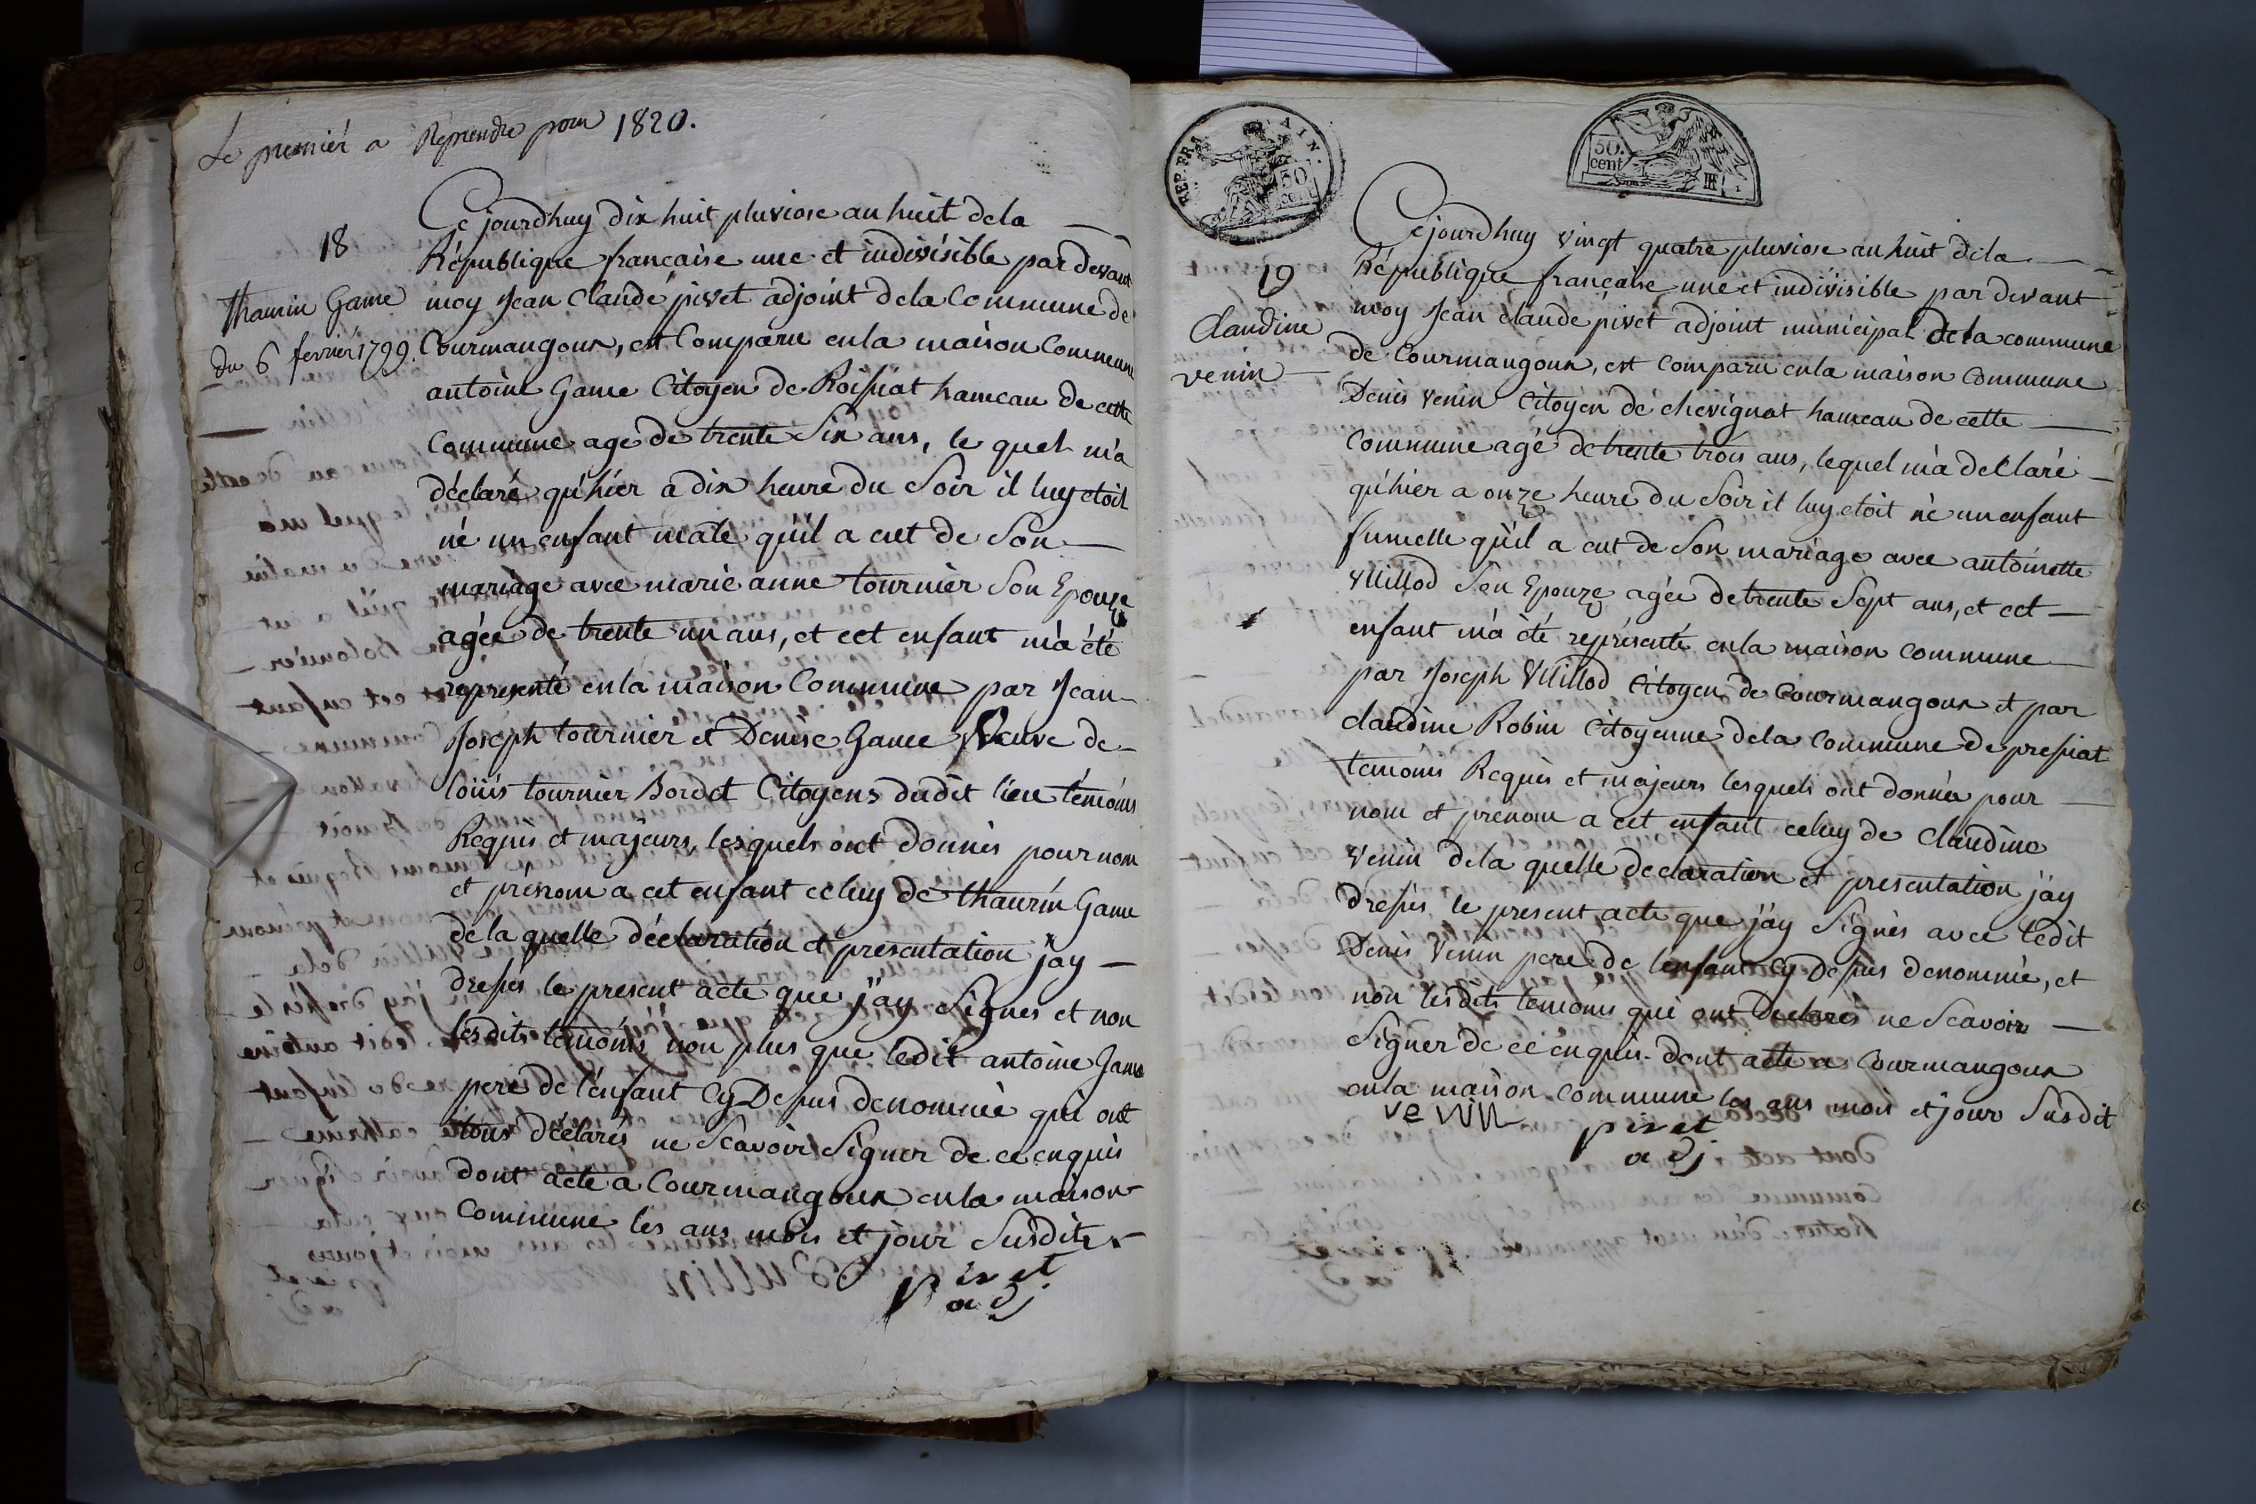 Le premiér a Reprendre pour 1820.
18
Thaurin Game
du 6 fevrier 1799.
Ce jourdhuy dix huit pluviose an huit dela
République francaise une et indivisible par devant
moy Jean Claude pivet adjoint dela Commune de
Courmangoux, est Comparu enla maison Commune
antoine Game Citoyen de Roissiat hameau de cette
Commune age de trente Six ans, le quel m'a
déclaré qu'hier a dix heure du Soir il luy etoit
né un enfant male qu'il a eut de Son
mariage avec marie anne tournier Son Epouze
agée de trente un ans, et cet enfant m'a été
representé enla maison Commune par Jean
Joseph tournier et Denise Game Veuve de
loüis tournier Bordet Citoyens dudit lieu témoins
Requis et majeurs, lesquels ont donnés pour nom
et prénom a cet enfant celuy de thaurin Game
de la quelle déclaration et presentation j'ay
dressés le present acte que j'ay Signés et non
lesdits témoins non plus que ledit antoine Game
pere de l'enfant Cy Dessus denommée qui ont
tous déclarés ne Scavoir Signer de ce enquis
dont acte a Courmangoux enla maison
Commune les ans mois et jour Susdits
pivet
adj
REP. FRA AIN.
50
cent
50.
cent
19
Claudine
venin
Ce jourdhuy vingt quatre pluviose an huit dela
République française une et indivisible par devant
moy Jean claude pivet adjoint municipal dela commune
de Courmangoux, est comparu enla maison Commune
Denis venin Citoyen de chevignat hameau de cette
Commune agé de trente trois ans, lequel m'a déclaré
qu'hier a onze heure du Soir il luy etoit né un enfant
fumelle qu'il a eut de Son mariage avec antoinette
Vuillod Son Epouze agée de trente Sept ans, et cet
enfant m'a été représenté enla maison commune
par Joseph Vuillod Citoyen de Courmangoux et par
claudine Robin Citoyenne dela Commune de pressiat
temoins Requis et majeurs lesquels ont donnés pour
nom et prénom a cet enfant celuy de Claudine
venin dela quelle declaration et presentation j'ay
dressés le present acte que j'ay Signés avec ledit
Denis Venin pere de l'enfant Cy Dessus denommé, et
non lesdits temoins qui ont Declarés ne Scavoir
Signer de ce enquis. dont acte a Courmangoux
enla maison commune les ans mois et jour Susdit
venin
pivet
adj